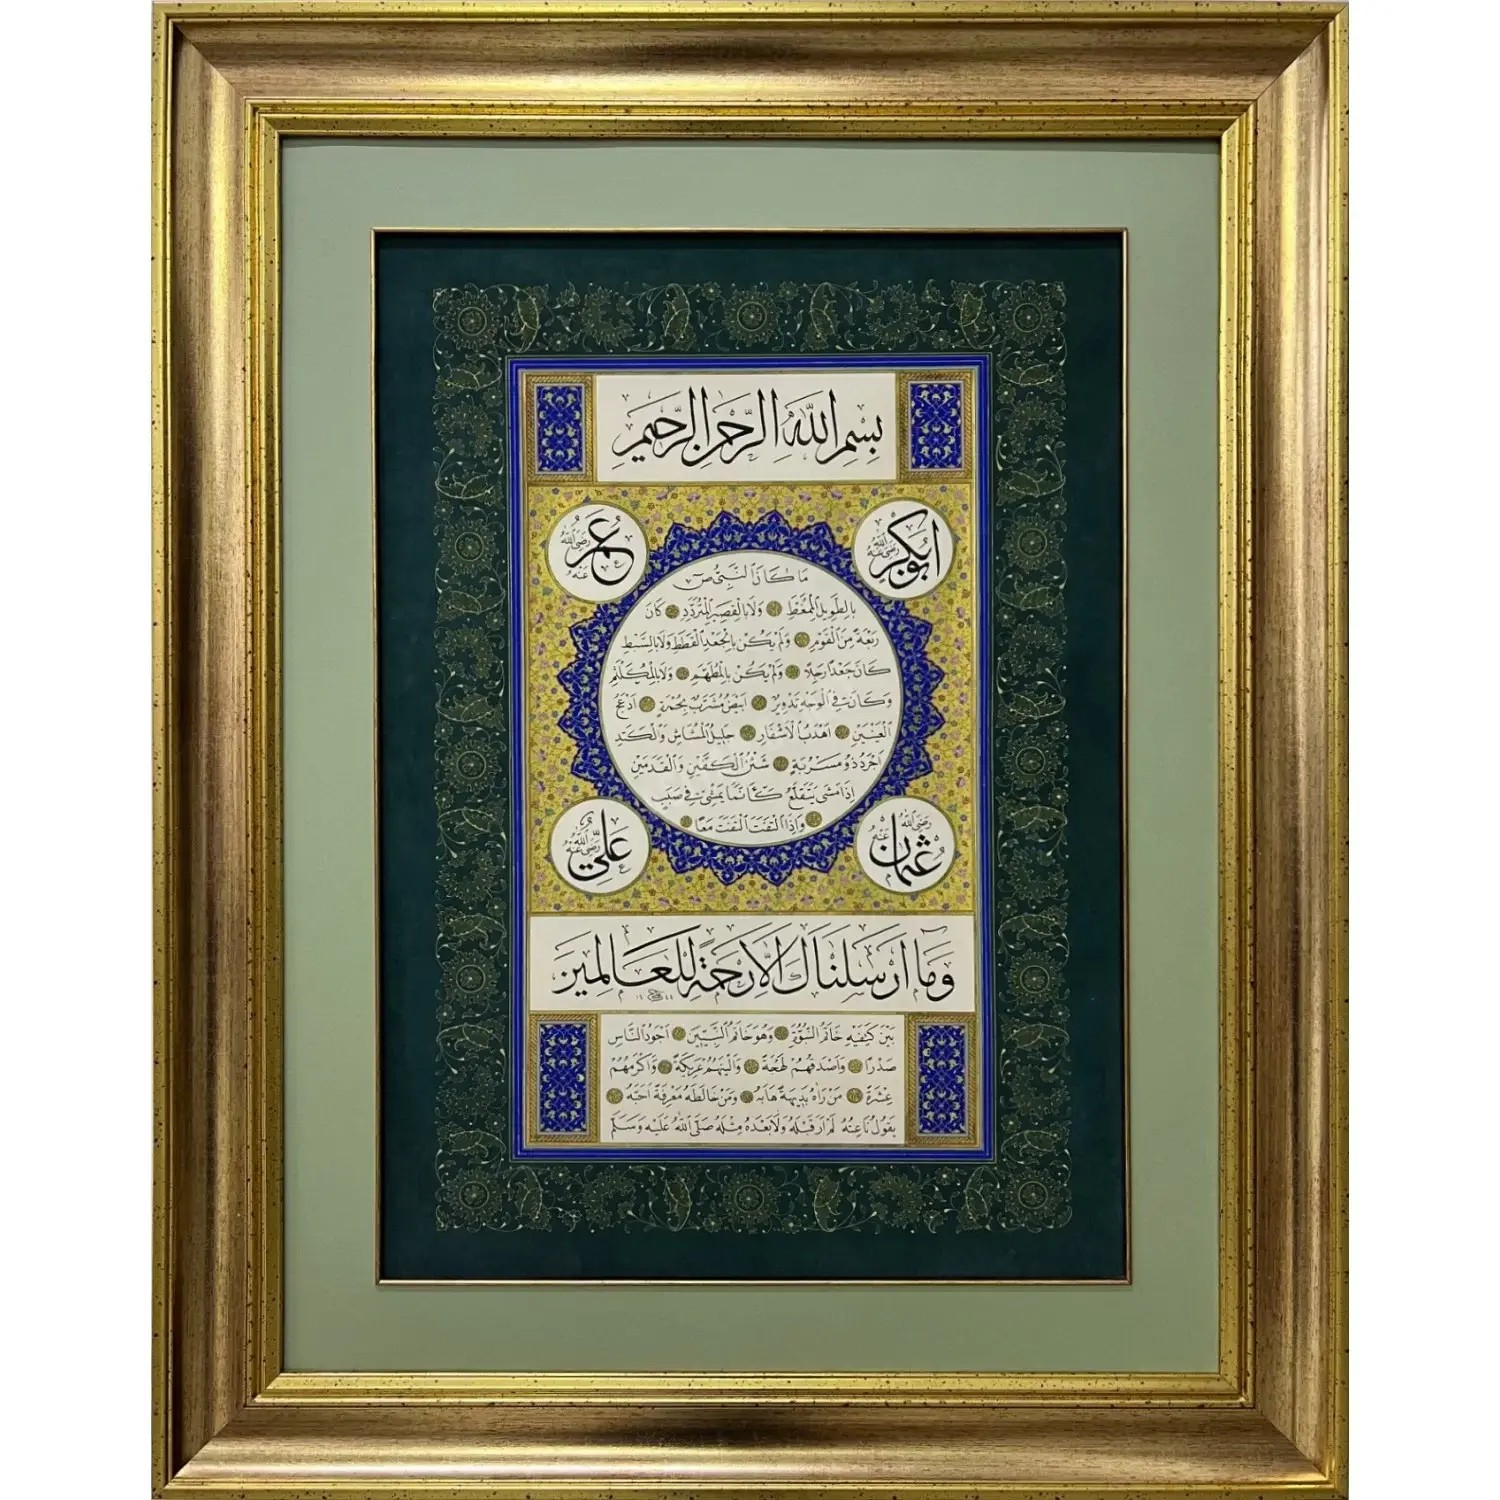 بِسْمِ اللّٰهِ الرَّحْمٰنِ الرَّحِيمِ
ابوبكر رضي الله عنه
عمر رضي الله عنه
ما كان النبي ص
بالطويل الممغط ولا بالقصير المتردد كان
ربعة من القوم ولم يكن بالجعد القطط ولا بالسبط
كان جعدا رجلا ولم يكن بالمطهم ولا بالمكلثم
وكان في الوجه تدوير ابيض مشرب بحمرة ادعج
العينين اهدب الاشفار جليل المشاش والكتد
اجرد ذو مسربة شثن الكفين والقدمين
اذا مشى يتقلع كأنما يمشي في صبب
واذا التفت التفت معا
عثمان رضي الله عنه
علي رضي الله عنه
وما ارسلناك الا رحمة للعالمين
بين كتفيه خاتم النبوة وهو خاتم النبيين اجود الناس
صدرا واصدقهم لهجة والينهم عريكة واكرمهم
عشرة من رآه بديهة هابه ومن خالطه معرفة احبه
يقول ناعته لم ار قبله ولا بعده مثله صلى الله عليه وسلم